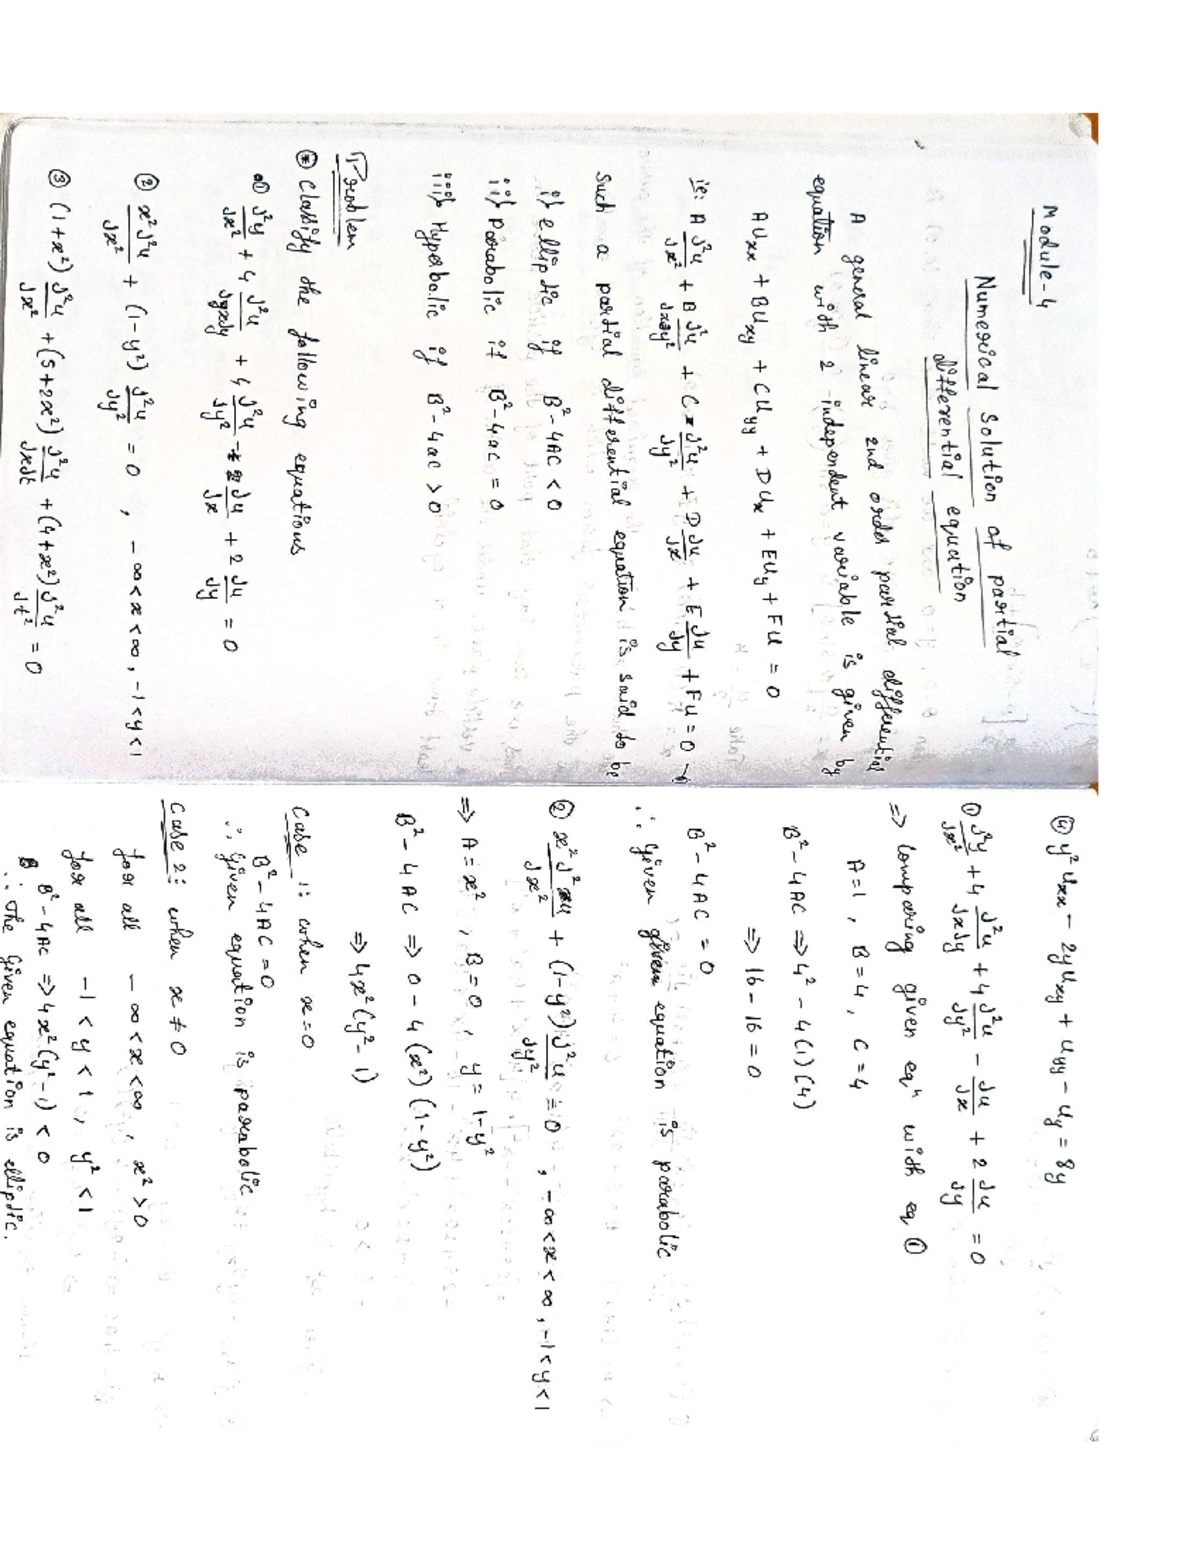 Module-4
Numerical Solution of partial
differential equation
A general linear 2nd order partial differential
equation with 2 independent variable is given by
AUxx + BUxy + CUyy + DUx + EUy + FU = 0
ie: A ∂²u/∂x² + B ∂²u/∂x∂y² + C ∂²u/∂y² + D ∂u/∂x + E ∂u/∂y + FU = 0 →①
Such a partial differential equation is said to be
i) elliptic if B² - 4AC < 0
ii) parabolic if B² - 4ac = 0
iii) Hyperbolic if B² - 4ac > 0
Problem
* Classify the following equations
① ∂²y/∂x² + 4 ∂²u/∂x∂y + 4 ∂²u/∂y² - ∂u/∂x + 2 ∂u/∂y = 0
② x²∂²u/∂x² + (1-y²) ∂²u/∂y² = 0 , -∞<x<∞, -1<y<1
③ (1+x²) ∂²u/∂x² + (5+2x²) ∂²u/∂x∂t + (4+x²) ∂²u/∂t² = 0
④ y²Uxx - 2yUxy + Uyy - Uy = 8y
① ∂²y/∂x² + 4 ∂²u/∂x∂y + 4 ∂²u/∂y² - ∂u/∂x + 2 ∂u/∂y = 0
⇒ Comparing given eqⁿ with eq ①
A=1 , B=4 , C=4
B² - 4AC ⇒ 4² - 4(1)(4)
⇒ 16 - 16 = 0
B² - 4AC = 0
∴ Given equation is parabolic
② x²∂²u/∂x² + (1-y²) ∂²u/∂y² = 0 , -∞<x<∞, -1<y<1
⇒ A=x² , B=0 , y=1-y²
B² - 4AC ⇒ 0 - 4(x²)(1-y²)
⇒ 4x²(y²-1)
Case 1: when x=0
B² - 4AC = 0
∴ Given equation is parabolic
Case 2: when x≠0
for all -∞<x<∞, x²>0
for all -1<y<1, y²<1
B² - 4AC ⇒ 4x²(y²-1) < 0
∴ The Given equation is elliptic.